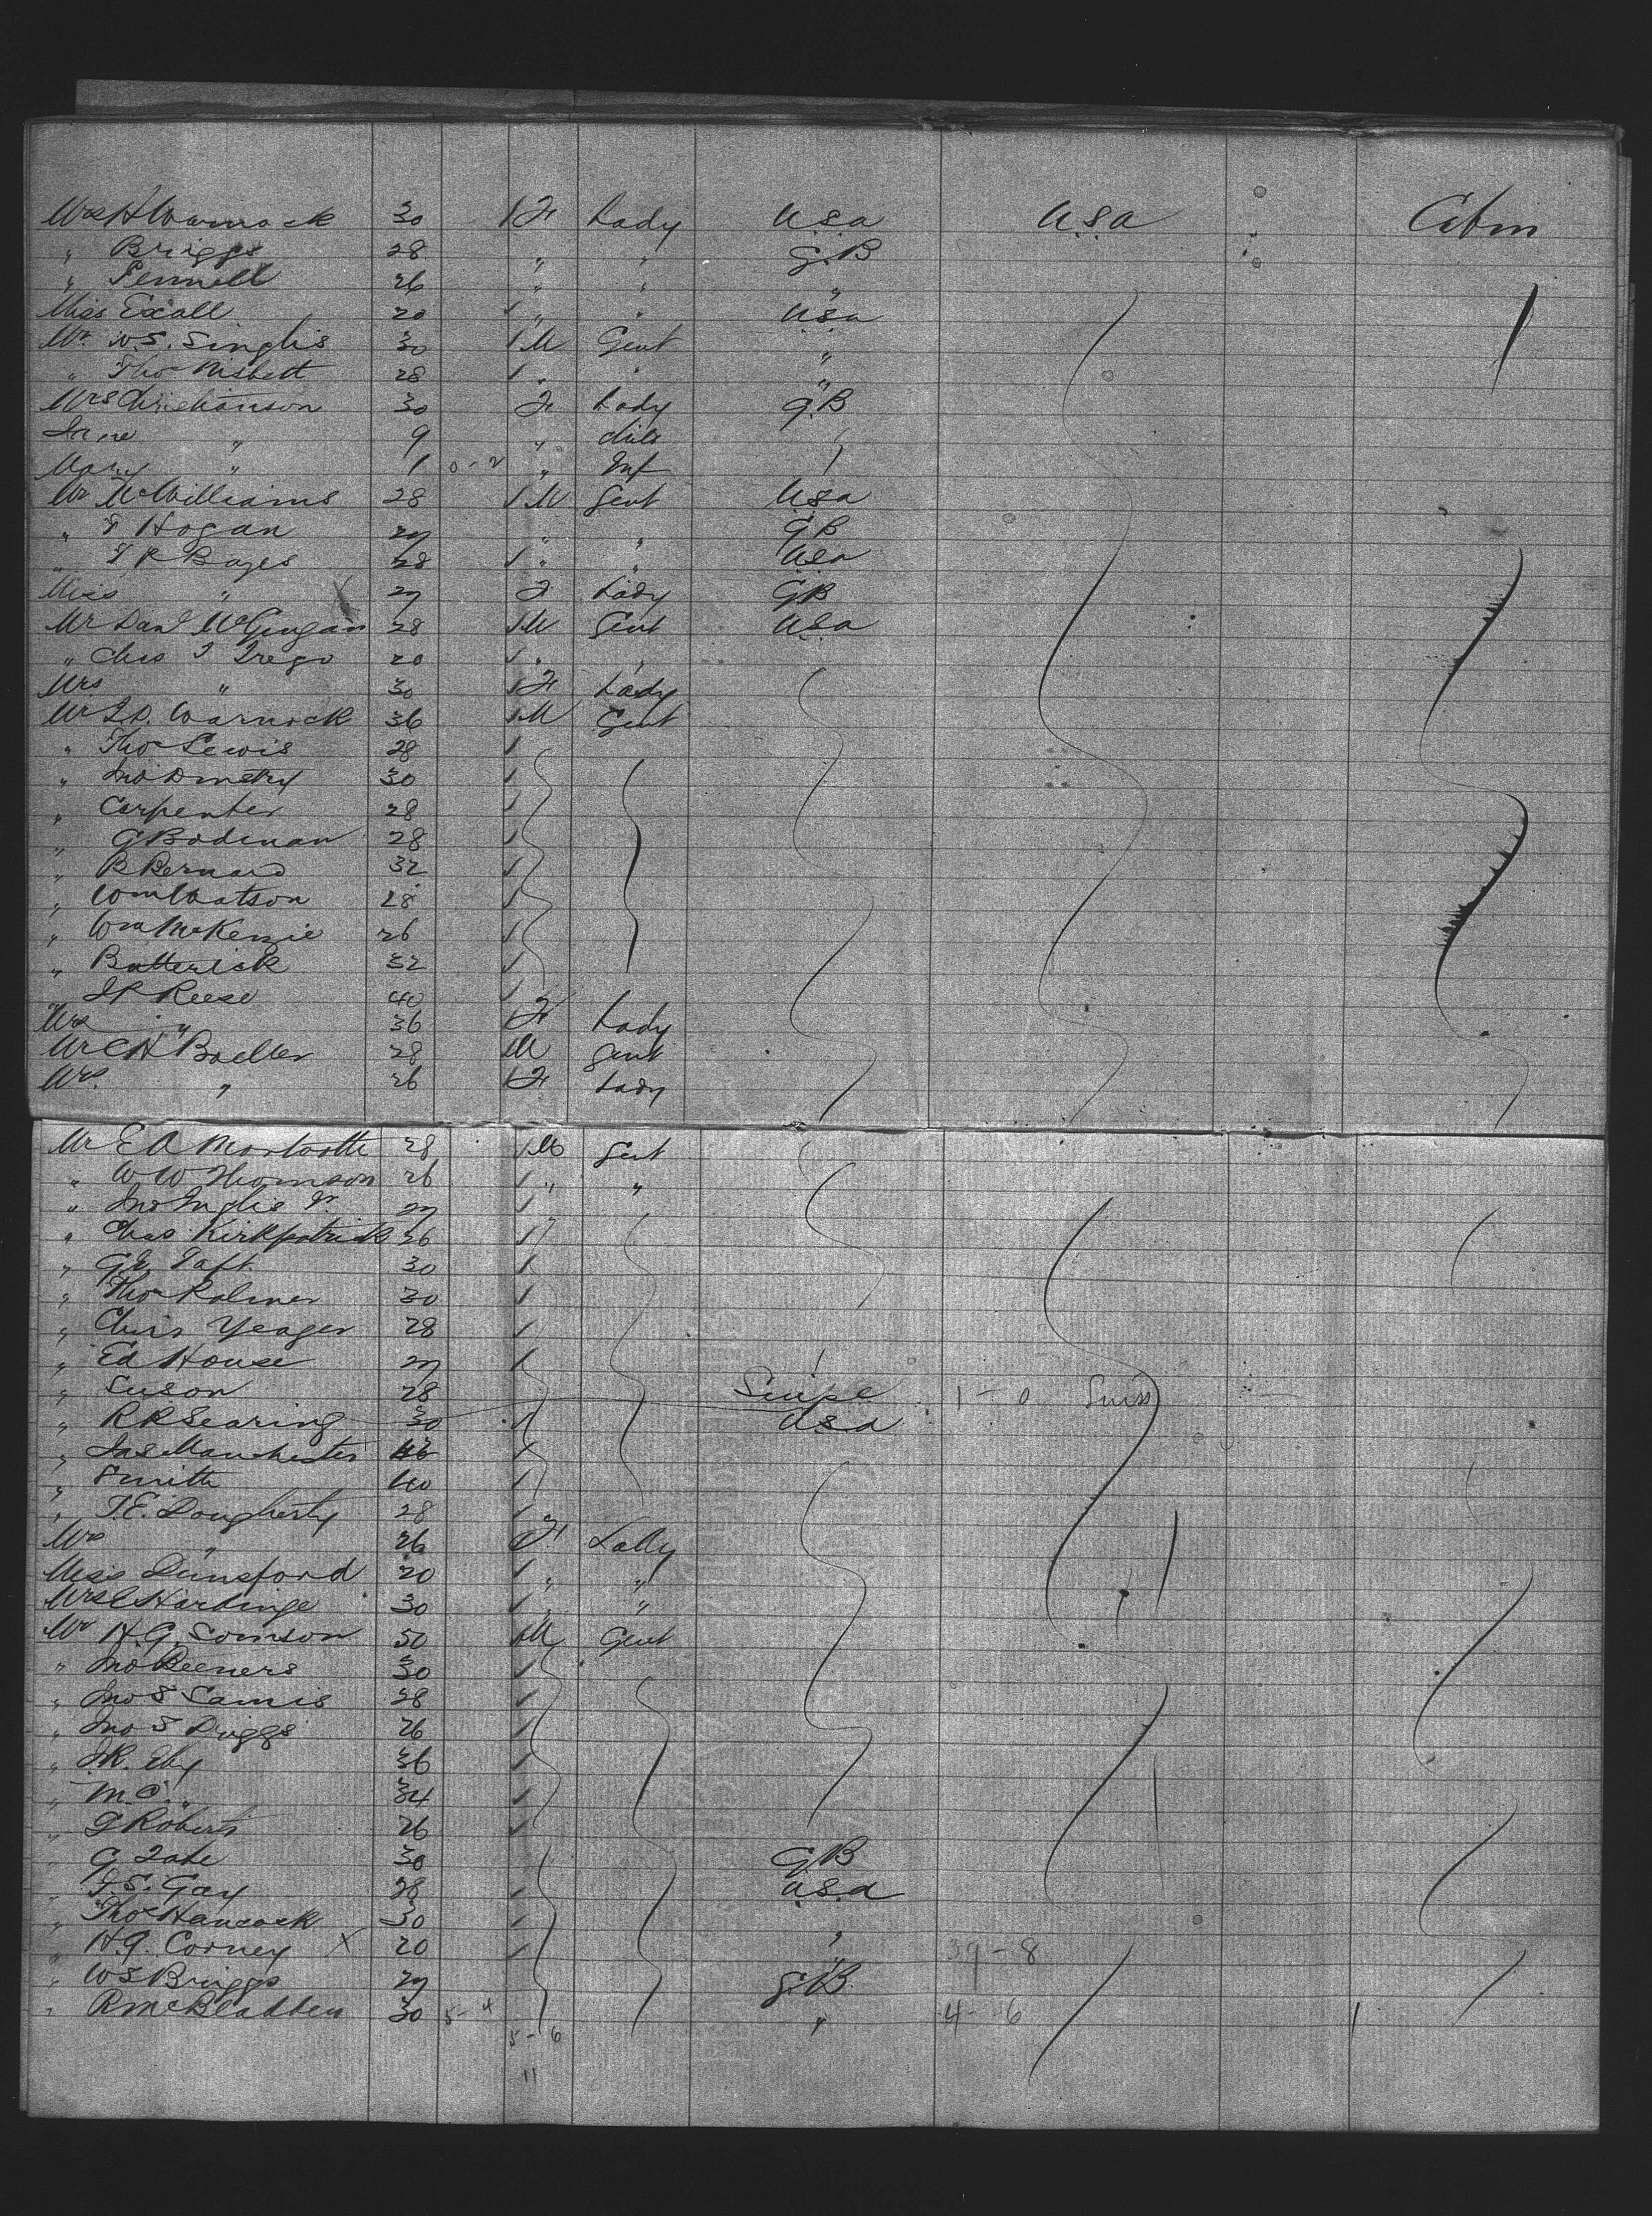 Mrs H Warnock 30 F Lady U.S.a U.S.a Cabin
" Briggs 28 " " G.B
" Pennell 26 " " "
Miss Exall 20 " " U.S.a
Mr. W.S. Singlis 30 M Gent "
" Thos Nisbett 28 " " "
Mrs Christianson 30 F Lady G.B
Jane " 9 " child
Mary " 1 0-2 " Inf
Mr McWilliams 28 M Gent U.S.a
" F Hogan 27 " " G B
" F R Bages 28 " " U.S.a
Miss " 27 F Lady G B
Mr Danl McGuigan 28 M Gent U.S.a
" Chas T Trego 20 " "
Mrs " 30 F Lady
Mr J.D. Warnock 36 M Gent
" Thos Lewis 28
" Jno 30
" Carpenter 28
" G Bodeman 28
" B Bernard 32
" Wm Watson 28
" Wm McKenzie 26
" Butterick 32
" J P Reese 40
Mrs " 36 F Lady
Mr C H Boeller 28 M Gent
Mrs. " 26 F Lady
Mr E A 28 M Gent
" W W Thomson 26 " "
" Jno Inglis Jr. 27
" Chas Kirkpatrick 26
" G.E. Taft 30
" Thos Palmer 30
" Chris Yeager 28
" Ed House 27
" Suson 28 1 - 0 Swiss
" R R Searing 30 U.S.a
" Jas Manchester 46
" Smith 40
" T.E. Dougherty 28
Mrs " 26 F Lady
Miss Dunsford 20 " "
Mrs C Hardinge 30 " "
Mr H.G. Somson 50 M Gent
" Jno Reeners 30
" Jno S Samis 28
" Jno S Driggs 26
" J.R. Eby 36
" M.C. " 34
" G Roberts 26
" G Tate 30 G B
" F.S. Gay 28 U.S.a
" Thos Hancock 30
" H.G. Corney X 20 " 39 - 8
" W S Briggs 27 G.B.
" R McBladden 30 5 - 4 " 4 - 6
5 - 6
11